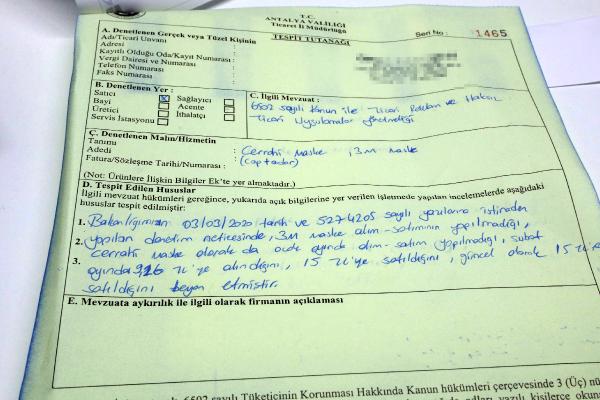 T.C.
ANTALYA VALİLİĞİ
Ticaret İl Müdürlüğü
TESPİT TUTANAĞI
Seri No : 1465
A. Denetlenen Gerçek veya Tüzel Kişinin
Adı/Ticari Unvanı :
Adresi :
Kayıtlı Olduğu Oda/Kayıt Numarası :
Vergi Dairesi ve Numarası :
Telefon Numarası :
Faks Numarası :
B. Denetlenen Yer :
Satıcı
Sağlayıcı
Bayi
Acente
Üretici
İthalatçı
Servis İstasyonu
C. İlgili Mevzuat :
6502 sayılı Kanun ile Ticari Reklam ve Haksız
Ticari Uygulamalar Yönetmeliği
Ç. Denetlenen Malın/Hizmetin
Tanımı : Cerrahi maske, 3M maske
Adedi :
Fatura/Sözleşme Tarihi/Numarası :
(Not: Ürünlere İlişkin Bilgiler Ek'te yer almaktadır.)
D. Tespit Edilen Hususlar
İlgili mevzuat hükümleri gereğince, yukarıda açık bilgilerine yer verilen işletmede yapılan incelemelerde aşağıdaki
hususlar tespit edilmiştir:
1. Bakanlığımızın 03/03/2020 tarih ve 5274205 sayılı yazılarına istinaden
2. yapılan denetim neticesinde, 3M maske alım-satımının yapılmadığı,
3. cerrahi maske olarak da ocak ayında alım-satım yapılmadığı, şubat
ayında TL'ye alındığını, 15 TL'ye satıldığını, güncel olarak 15 TL'ye
satıldığını beyan etmiştir.
E. Mevzuata aykırılık ile ilgili olarak firmanın açıklaması
6502 sayılı Tüketicinin Korunması Hakkında Kanun hükümleri çerçevesinde 3 (Üç) nü
adları yazılı kişilerce